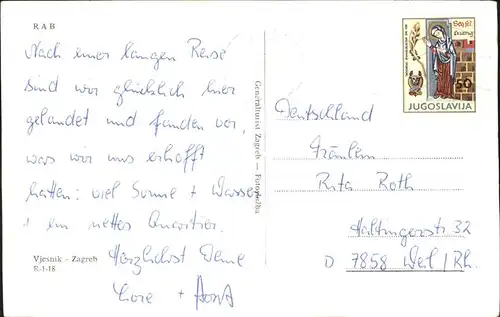 RAB
Nach einer langen Reise
sind wir glücklich hier
gelandet und fanden vor,
was wir uns erhofft
hatten: viel Sonne + Wasser
+ ein nettes Quartier.
Herzlichst Deine
Lore +
Vjesnik - Zagreb
R-1-18
Generalturist Zagreb — Fotozlužba
50
JUGOSLAVIJA
Deutschland
Fräulein
Rita Roth
Haltingerstr 32
D 7858 Weil/Rh.